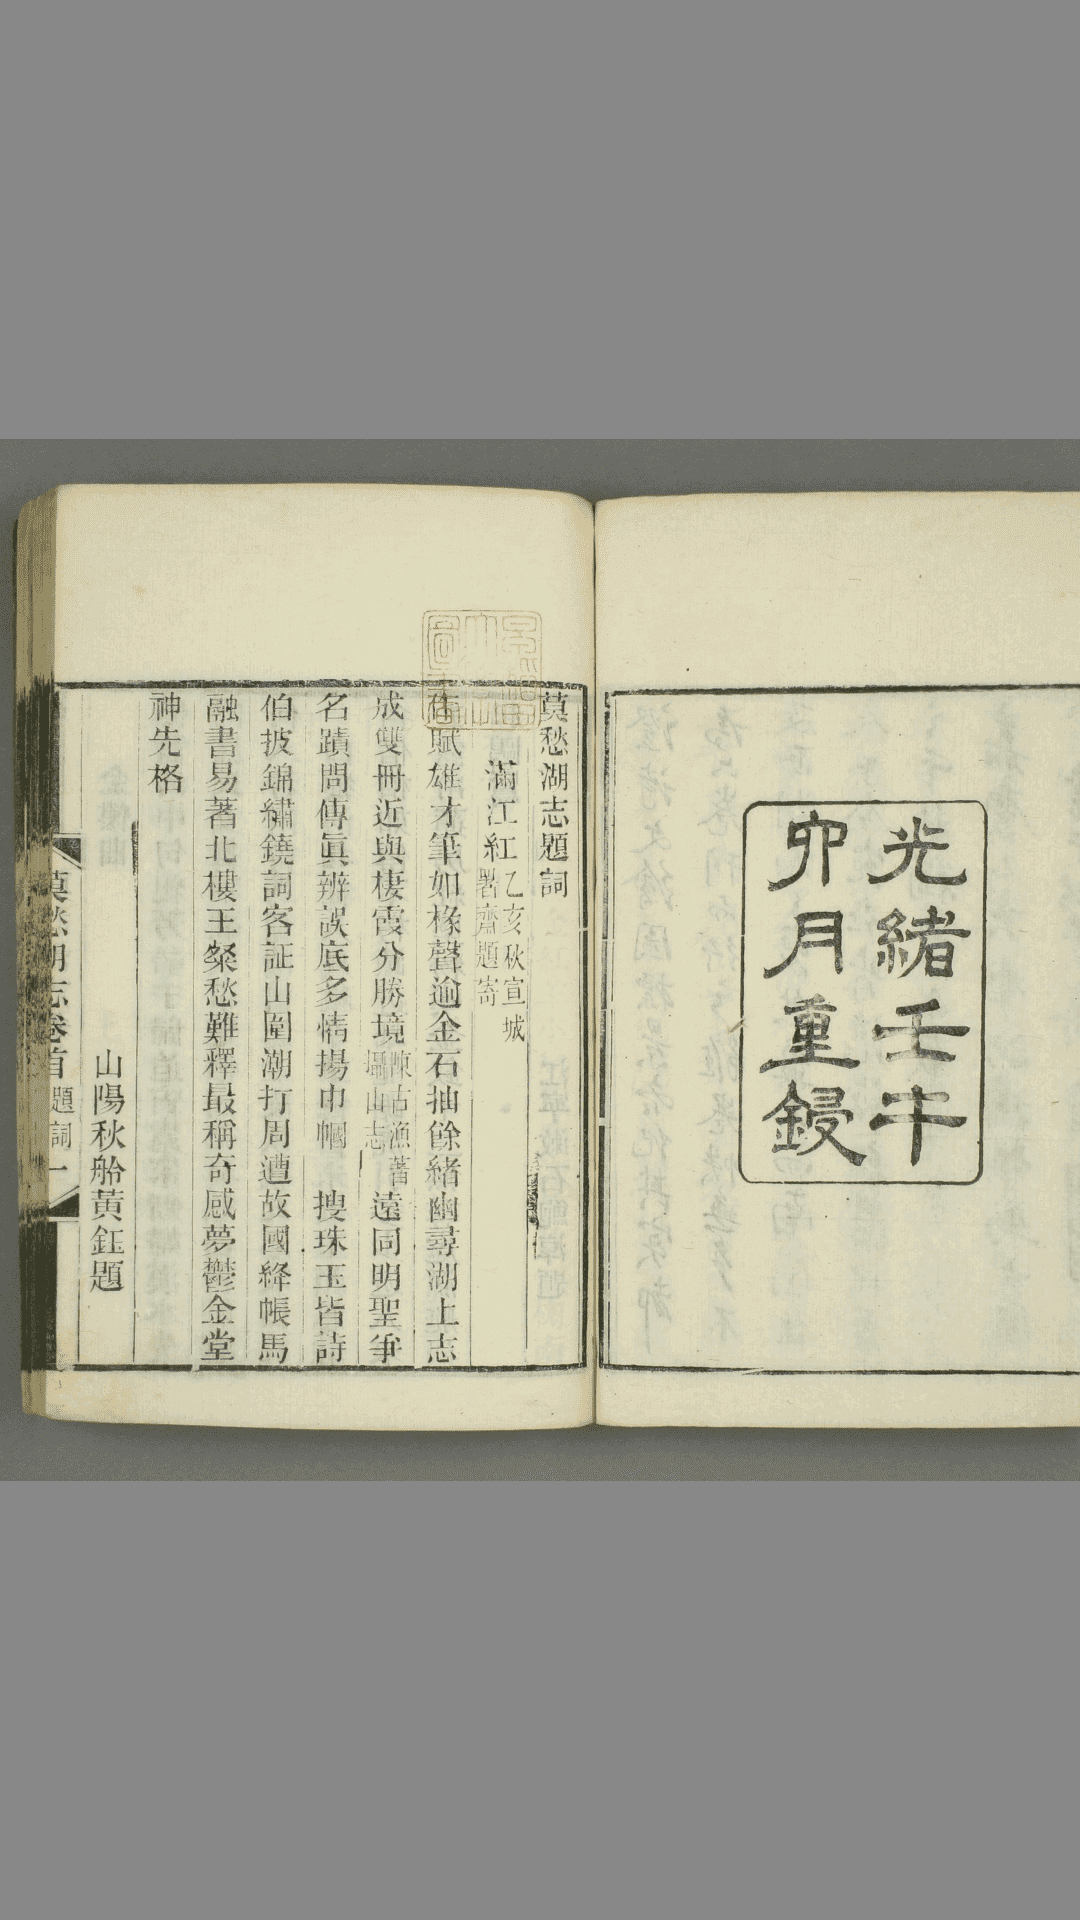 光緒壬午
卯月重鋟
莫愁湖志題詞
滿江紅 乙亥秋宣城
署齋題寄
作賦雄才筆如椽聲逾金石抽餘緒幽尋湖上志
成雙冊近與棲霞分勝境 陳古漁著
攝山志 遠同明聖爭
名蹟問傳眞辨誤底多情揚巾幗 搜珠玉皆詩
伯披錦繡鐃詞客証山圍潮打周遭故國絳帳馬
融書易著北樓王粲愁難釋最稱奇感夢鬱金堂
神先格
山陽秋舲黃鈺題
莫愁湖志卷首 題詞 一